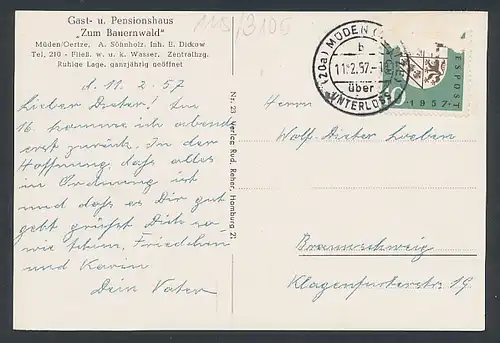 115/3106
Gast- u. Pensionshaus
„Zum Bauernwald"
Müden/Oertze, A. Söhnholz, Inh. E. Dickow
Tel. 210 - Fließ. w. u. k. Wasser, Zentralhzg.
Ruhige Lage, ganzjährig geöffnet
d. 11. 2. 57
Lieber Dieter! Am
16. komme ich abends
erst zurück. In der
Hoffnung, daß alles
in Ordnung ist
und daß es Dir gut
geht grüßt Dich so-
wie Friedchen
und Karin
Dein Vater
Nr. 23 Verlag Rud. Reher, Hamburg 21
(20a) MÜDEN
b
11.2.57.-1
über
UNTERLÜSS
ESPOST
1957
Herrn
Wolf-Dieter Loeben
Braunschweig
Klagenfurterstr. 19